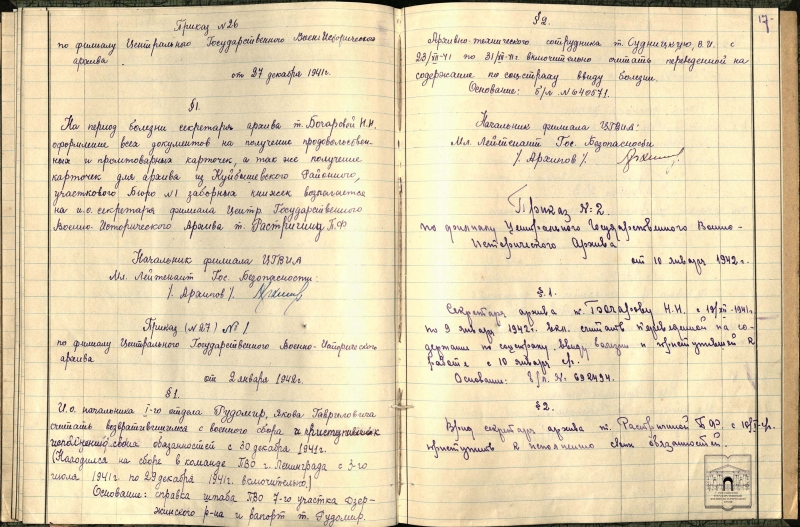 Приказ №26
по филиалу Центрального Государственного Военно-Исторического
архива
от 27 декабря 1941г.
§1.
На период болезни секретаря архива т. Бочаровой Н.Н.
оформление всех документов на получение продовольствен-
ных и промтоварных карточек, а так же получение
карточек для архива из Куйбышевского Районного,
участкового Бюро №1 заборных книжек возлагается
на и.о. секретаря филиала Центр. Государственного
Военно-Исторического Архива т. Растригину П.Ф
Начальник филиала ЦГВИА
Мл. Лейтенант Гос. Безопасности:
/ Архипов /.
Приказ (№27) № 1
по филиалу Центрального Государственного Военно-Исторического
архива
от 2 января 1942г.
§1.
И.о. начальника I-го отдела Рудомир, Якова Гавриловича
считать возвратившимся с военного сбора и приступившим к
исполнению своих обязанностей с 30 декабря 1941г.
(Находился на сборе в команде ПВО г. Ленинграда с 3-го
июля 1941г по 29 декабря 1941г. включительно)
Основание: справка штаба ПВО 7-го участка Дзер-
жинского р-на и рапорт т. Рудомир.
17
§2.
Архивно-технического сотрудника т. Судницкую, В.И. с
23/XII-41 по 31/XII-41г. включительно считать переведенной на
содержание по соцстраху ввиду болезни.
Основание: б/л. №640571.
Начальник филиала ЦГВИА:
Мл. Лейтенант Гос. Безопасности
/. Архипов /.
Приказ №2.
по филиалу Центрального Государственного Военно-
Исторического Архива
от 10 января 1942г.
§.1.
Секретаря архива т. Бочарову Н.Н. с 19/XII-1941г.
по 9 января 1942г. вкл. считать переведенной на со-
держание по соцстраху ввиду болезни и приступившей к
работе с 10 января с/г.
Основание: б/л. № 692494.
§2.
Врид секретаря архива т. Растригиной П.Ф. с 10/I-с/г.
приступить к исполнению своих обязанностей.